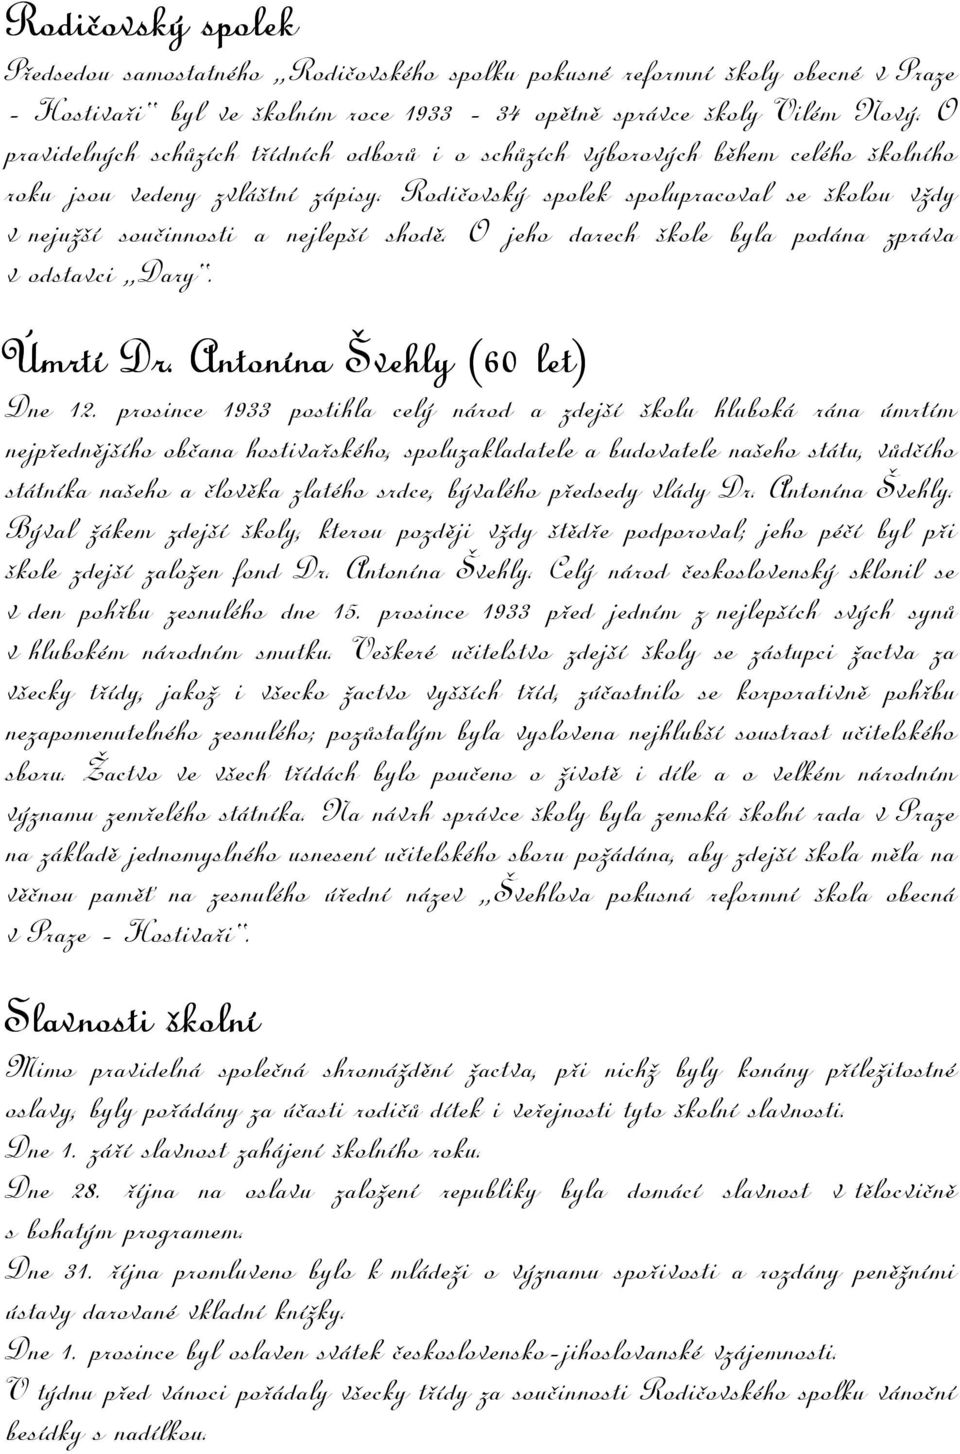 Rodičovský spolek
Předsedou samostatného „Rodičovského spolku pokusné reformní školy obecné v Praze
- Hostivaři“ byl ve školním roce 1933 - 34 opětně správce školy Vilém Nový. O
pravidelných schůzích třídních odborů i o schůzích výborových během celého školního
roku jsou vedeny zvláštní zápisy. Rodičovský spolek spolupracoval se školou vždy
v nejužší součinnosti a nejlepší shodě. O jeho darech škole byla podána zpráva
v odstavci „Dary“.
Úmrtí Dr. Antonína Švehly (60 let)
Dne 12. prosince 1933 postihla celý národ a zdejší školu hluboká rána úmrtím
nejpřednějšího občana hostivařského, spoluzakladatele a budovatele našeho státu, vůdčího
státníka našeho a člověka zlatého srdce, bývalého předsedy vlády Dr. Antonína Švehly.
Býval žákem zdejší školy, kterou později vždy štědře podporoval; jeho péčí byl při
škole zdejší založen fond Dr. Antonína Švehly. Celý národ československý sklonil se
v den pohřbu zesnulého dne 15. prosince 1933 před jedním z nejlepších svých synů
v hlubokém národním smutku. Veškeré učitelstvo zdejší školy se zástupci žactva za
všecky třídy, jakož i všecko žactvo vyšších tříd, zúčastnilo se korporativně pohřbu
nezapomenutelného zesnulého; pozůstalým byla vyslovena nejhlubší soustrast učitelského
sboru. Žactvo ve všech třídách bylo poučeno o životě i díle a o velkém národním
významu zemřelého státníka. Na návrh správce školy byla zemská školní rada v Praze
na základě jednomyslného usnesení učitelského sboru požádána, aby zdejší škola měla na
věčnou paměť na zesnulého úřední název „Švehlova pokusná reformní škola obecná
v Praze - Hostivaři“.
Slavnosti školní
Mimo pravidelná společná shromáždění žactva, při nichž byly konány příležitostné
oslavy, byly pořádány za účasti rodičů dítek i veřejnosti tyto školní slavnosti.
Dne 1. září slavnost zahájení školního roku.
Dne 28. října na oslavu založení republiky byla domácí slavnost v tělocvičně
s bohatým programem.
Dne 31. října promluveno bylo k mládeži o významu spořivosti a rozdány peněžními
ústavy darované vkladní knížky.
Dne 1. prosince byl oslaven svátek československo-jihoslovanské vzájemnosti.
V týdnu před vánoci pořádaly všecky třídy za součinnosti Rodičovského spolku vánoční
besídky s nadílkou.